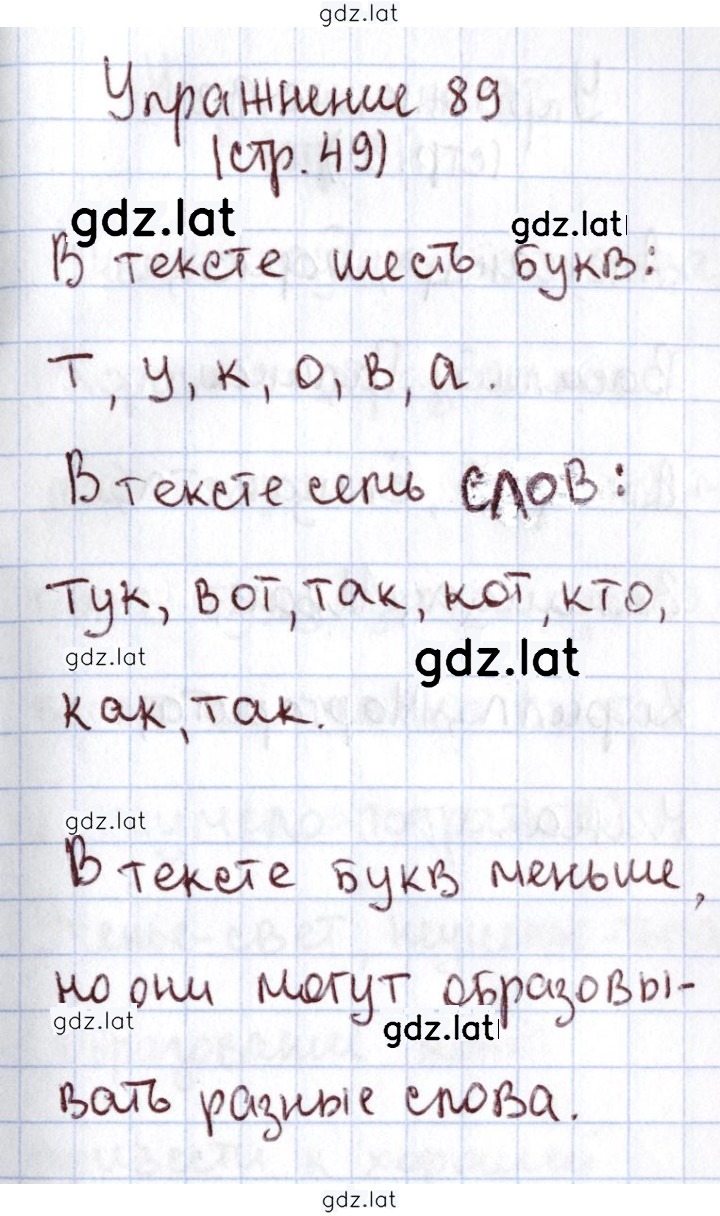 gdz.lat
Упражнение 89
(стр. 49)
gdz.lat gdz.lat
В тексте шесть букв:
т, у, к, о, в, а.
В тексте семь слов:
тук, вот, так, кот, кто,
gdz.lat gdz.lat
как, так.
gdz.lat
В тексте букв меньше,
но они могут образовы-
gdz.lat gdz.lat
вать разные слова.
gdz.lat